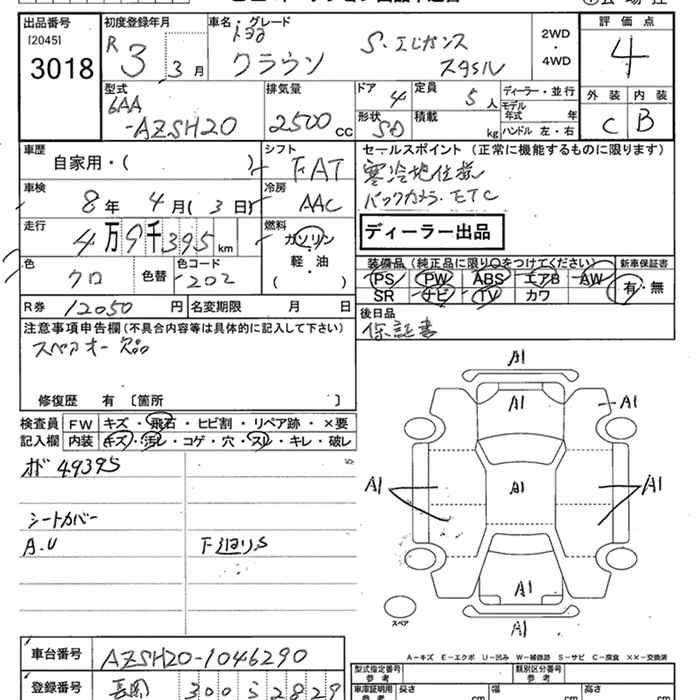 出品番号
[2045]
3018
初度登録年月
R 3 3月
車名・グレード
トヨタ
クラウン
S・エレガンス
スタイル
2WD
・
4WD
評価点
4
型式
6AA
-AZSH20
排気量
2500 CC
ドア 4
定員 5人
形状 SD
積載 kg
ディーラー・並行
モデル
年式 年
ハンドル 左・右
外装 内装
C B
車歴
自家用・( )
シフト
FAT
セールスポイント (正常に機能するものに限ります)
寒冷地仕様
バックカメラ・ETC
ディーラー出品
車検
8年 4月(3日)
冷房
AAC
走行
4万9千395km
燃料
ガソリン
・
軽・油
( )
色
クロ
色替
色コード
202
装備品(純正品に限り○をつけてください)
PS PW ABS エアB AW
SR ナビ TV カワ
新車保証書
有・無
R券 12050円
名変期限 月 日
後日品
保証書
注意事項申告欄(不具合内容等は具体的に記入して下さい)
スペアキー欠品
修復歴 有 〔箇所 〕
検査員
記入欄
FW キズ・飛石・ヒビ割・リペア跡・×要
内装 キズ・汚レ・コゲ・穴・スレ・キレ・破レ
オド 49395
シートカバー
A.U
下廻りS
A1
A1
A1
A1
A1
A1
A1
A1
スペア
A-キズ E-エクボ U-凹み W-補修跡 S-サビ C-腐食 ××-交換済
車台番号 AZSH20-1046290
登録番号 長岡 300 ミ 2829
型式指定番号
参考
類別区分番号
参考
車庫証明用
参考
長さ cm
幅 cm
高さ cm